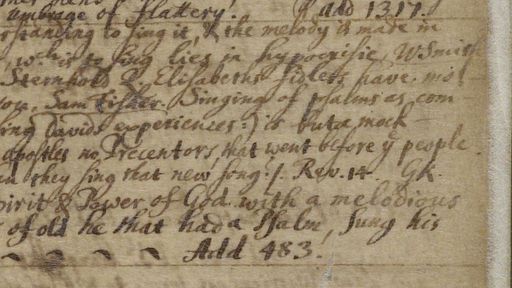 umbrage of flattery. add 1317.
rstanding to sing it, & the melody is made in
, wch is to sing lies in hypocrisie, W: Smith
Sternhold & Elisabeths fidlers have mo
Sam: Fisher. Singing of psalms as com
ing Davids experiences:) is but a mock-
apostles no, Precentors, that went before ye people
an they sing that new song:/. Rev. 14. GK.
pirit & Power of God with a melodious
of old he that had a Psalm, sung his
Add 483.